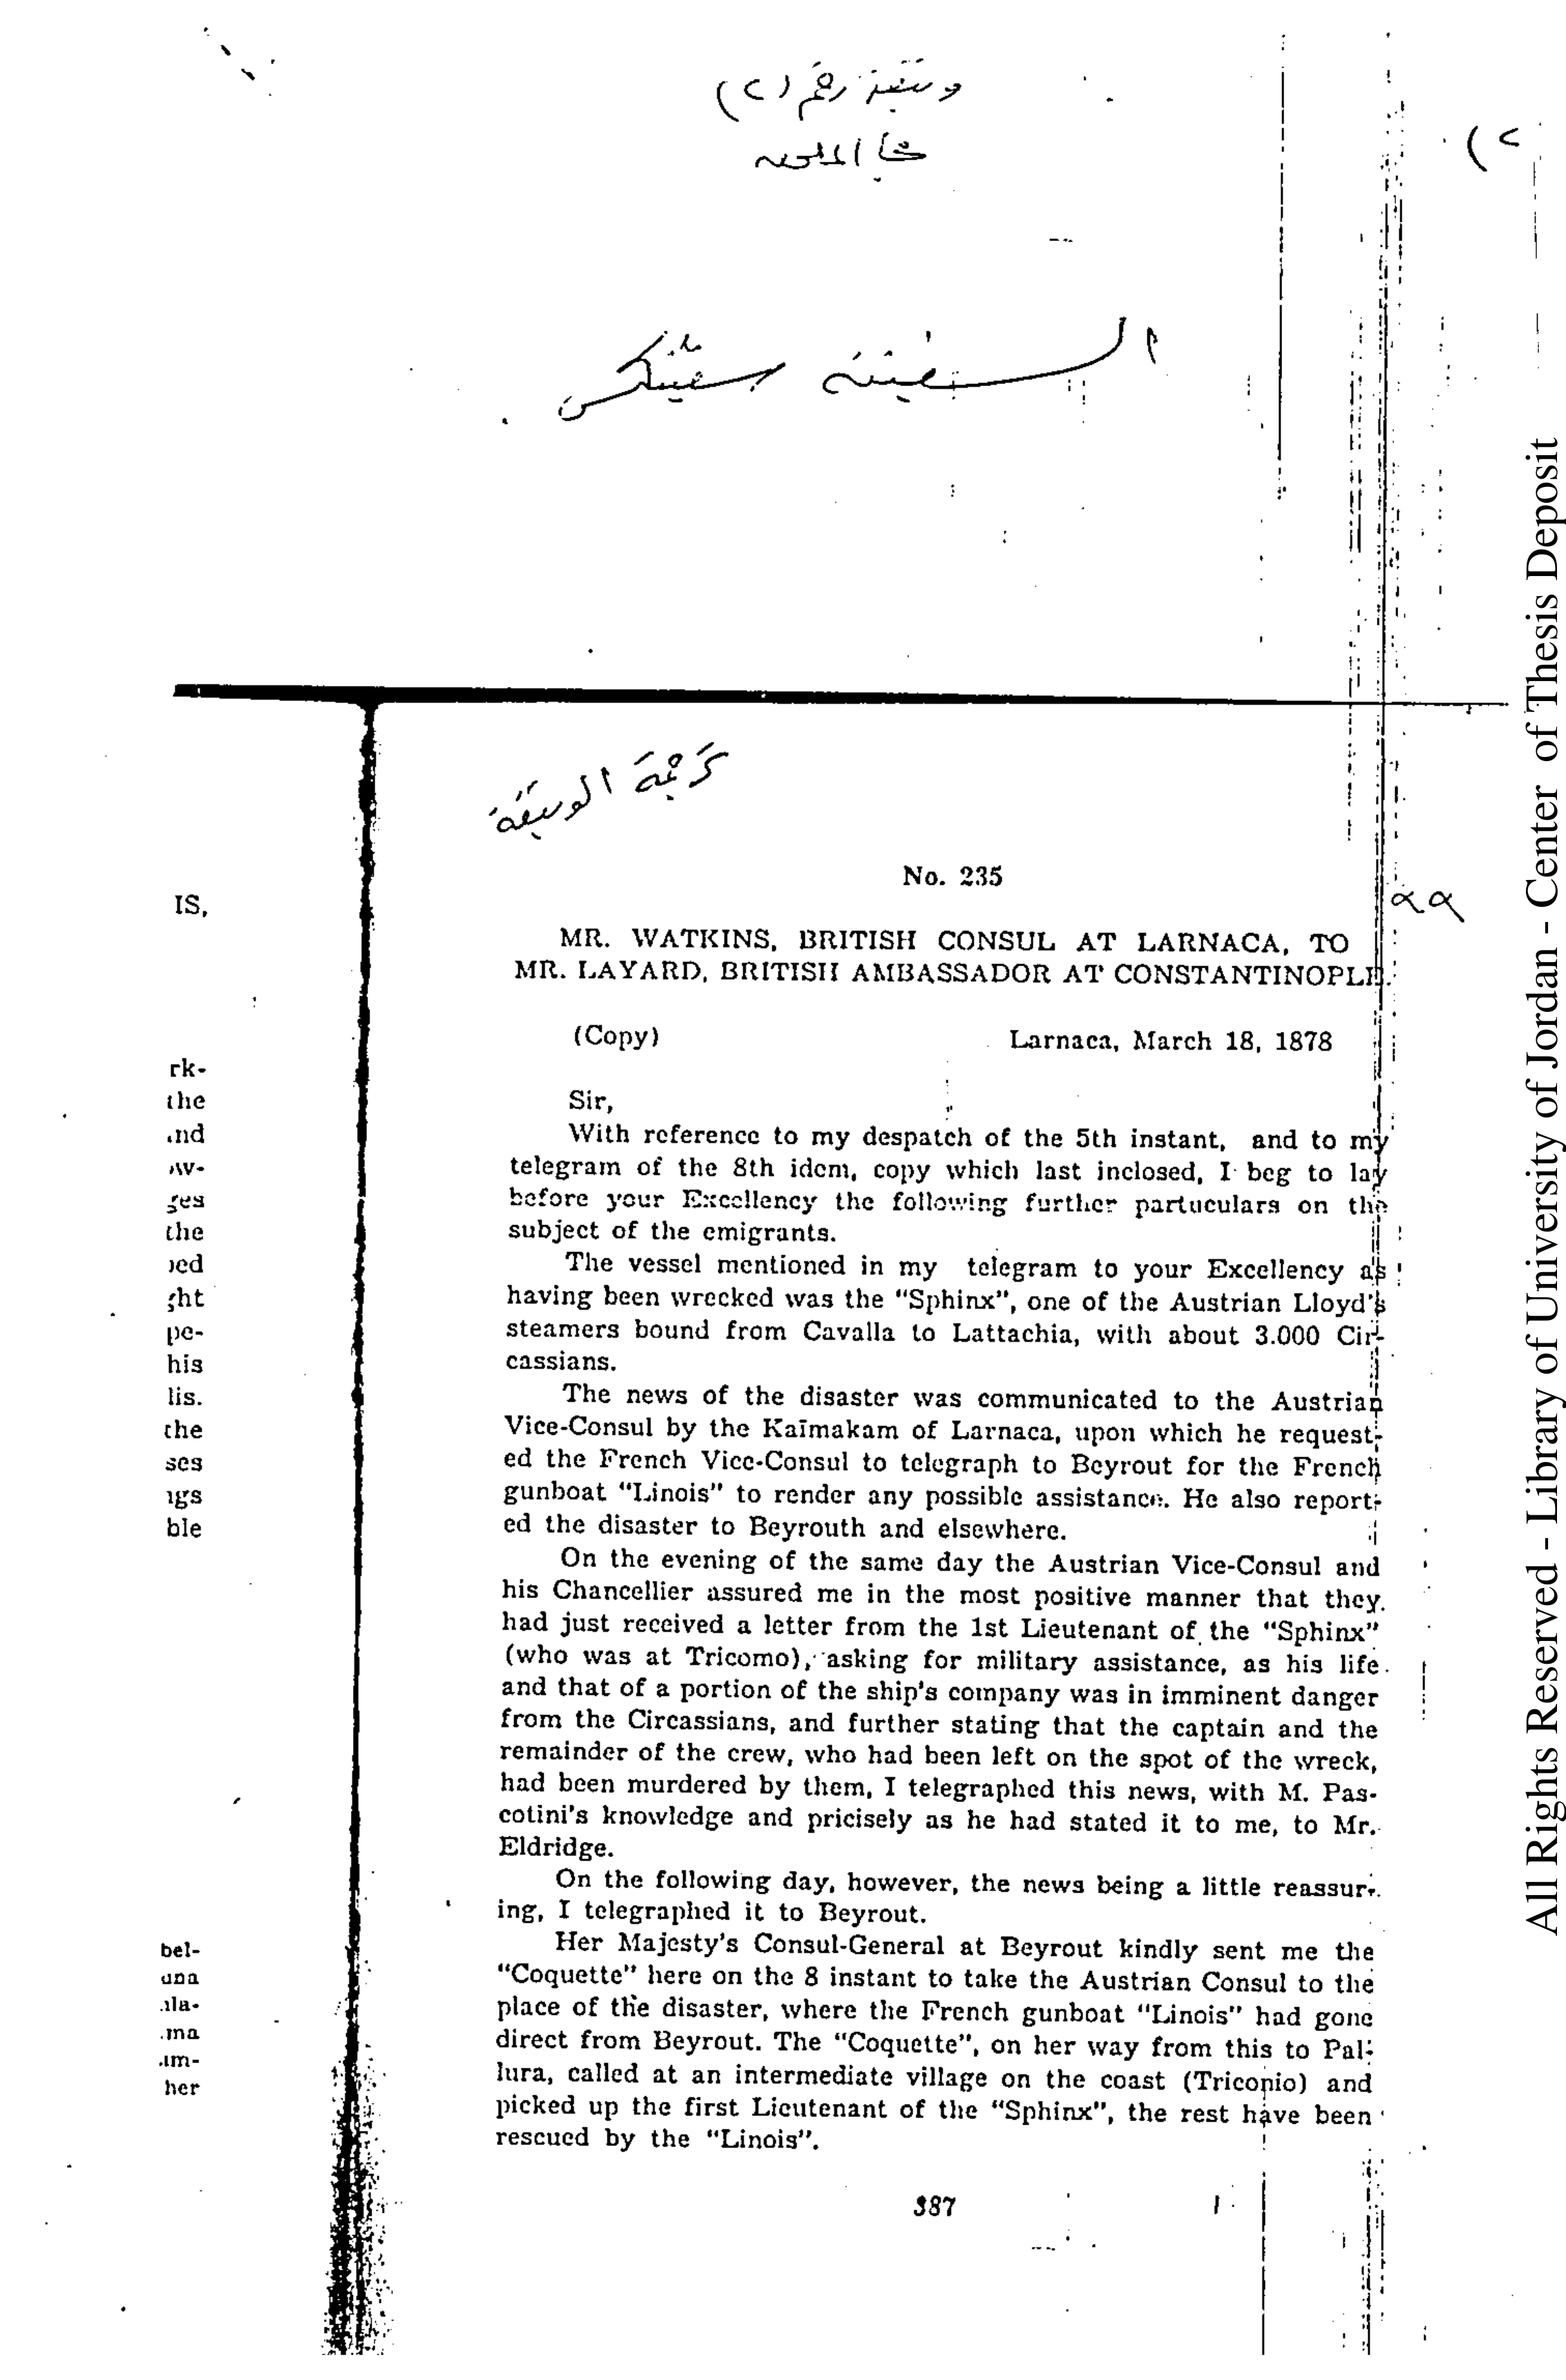 وثيقة رقم (٢)
السفينة سفينكس
(٢
ترجمة الوثيقة
No. 235
MR. WATKINS, BRITISH CONSUL AT LARNACA, TO
MR. LAYARD, BRITISH AMBASSADOR AT CONSTANTINOPLE.
(Copy) Larnaca, March 18, 1878
Sir,
With reference to my despatch of the 5th instant, and to my
telegram of the 8th idem, copy which last inclosed, I beg to lay
before your Excellency the following further partuculars on the
subject of the emigrants.
The vessel mentioned in my telegram to your Excellency as
having been wrecked was the "Sphinx", one of the Austrian Lloyd's
steamers bound from Cavalla to Lattachia, with about 3.000 Cir-
cassians.
The news of the disaster was communicated to the Austrian
Vice-Consul by the Kaïmakam of Larnaca, upon which he request-
ed the French Vice-Consul to telegraph to Beyrout for the French
gunboat "Linois" to render any possible assistance. He also report-
ed the disaster to Beyrouth and elsewhere.
On the evening of the same day the Austrian Vice-Consul and
his Chancellier assured me in the most positive manner that they
had just received a letter from the 1st Lieutenant of the "Sphinx"
(who was at Tricomo), asking for military assistance, as his life
and that of a portion of the ship's company was in imminent danger
from the Circassians, and further stating that the captain and the
remainder of the crew, who had been left on the spot of the wreck,
had been murdered by them, I telegraphed this news, with M. Pas-
cotini's knowledge and pricisely as he had stated it to me, to Mr.
Eldridge.
On the following day, however, the news being a little reassur-
ing, I telegraphed it to Beyrout.
Her Majesty's Consul-General at Beyrout kindly sent me the
"Coquette" here on the 8 instant to take the Austrian Consul to the
place of the disaster, where the French gunboat "Linois" had gone
direct from Beyrout. The "Coquette", on her way from this to Pal-
lura, called at an intermediate village on the coast (Triconio) and
picked up the first Lieutenant of the "Sphinx", the rest have been
rescued by the "Linois".
387
IS,
rk-
the
nd
w-
ges
the
ed
ght
pe-
his
lis.
the
ses
ngs
ble
bel-
una
ala-
ma
im-
her
All Rights Reserved - Library of University of Jordan - Center of Thesis Deposit